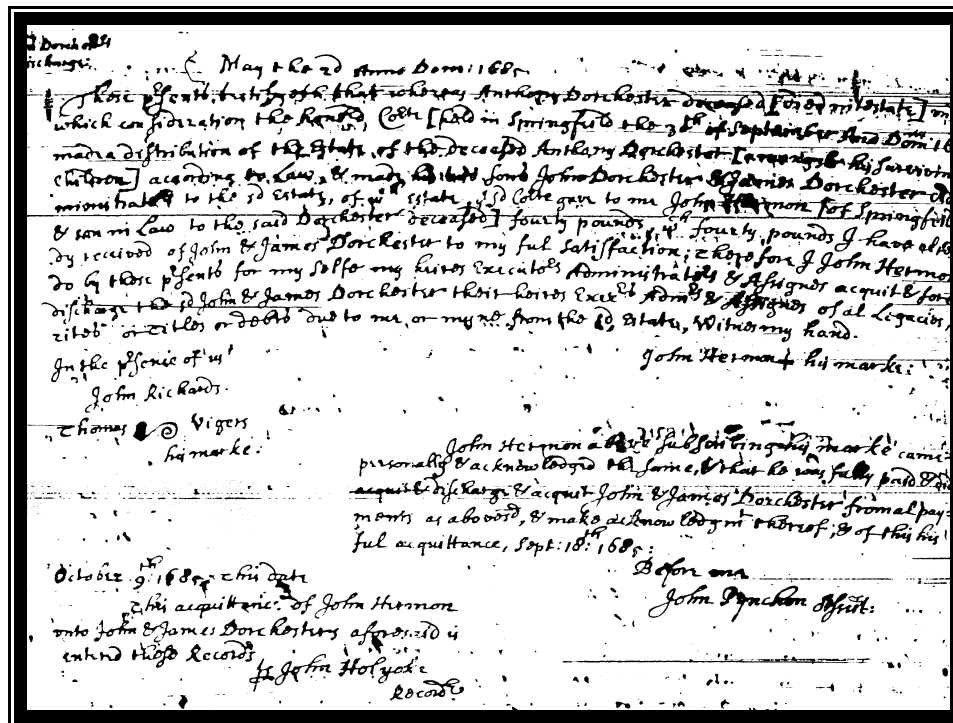 Dorchest
discharge
May the 2d Anno Dom: 1685
These prsents testifyeth that whereas Anthony Dorchester deceased [dyed intestate] on
which consideration the honord Corte [held in Springfield the of September Ano Dom
made a distribution of the Estate of the deceased Anthony Dorchester [amongst his surviving
Children] according to Law, & made his two sons John Dorchester & James Dorchester Ad
ministrators to the sd Estate, of wch Estate ye sd Corte gave to me John Hermon [of Springfield
& son in Law to the said Dorchester deceased] fourty pounds, wch fourty pounds I have alrea
dy received of John & James Dorchester to my ful satisfaction; Therefore I John Hermon
do by these prsents for my selfe my heires Executors Administrators & Assignes acquit & fore
discharge the sd John & James Dorchester their heires Execrs Admrs & Assignes of al Legacies,
rites or Titles or debts due to me, or myne from the sd Estate, Witnes my hand.
In the prsence of us
John Hermon his marke:
John Richards.
Thomas Vigers
his marke:
John Hermon above subscribing his marke came
personally & acknowledged the same, & that he was fully payd &
acquit & discharge & acquit John & James Dorchester from al pay-
ments as abovesd, & make acknowledgmt thereof, & of this his
ful acquittance, Sept: 18th: 1685:
Before me
John Pynchon Assist:
October 9th: 1685 This date
This acquittance of John Hermon
unto John & James Dorchesters aforesd is
entered these Records
pr John Holyoke
Recordr